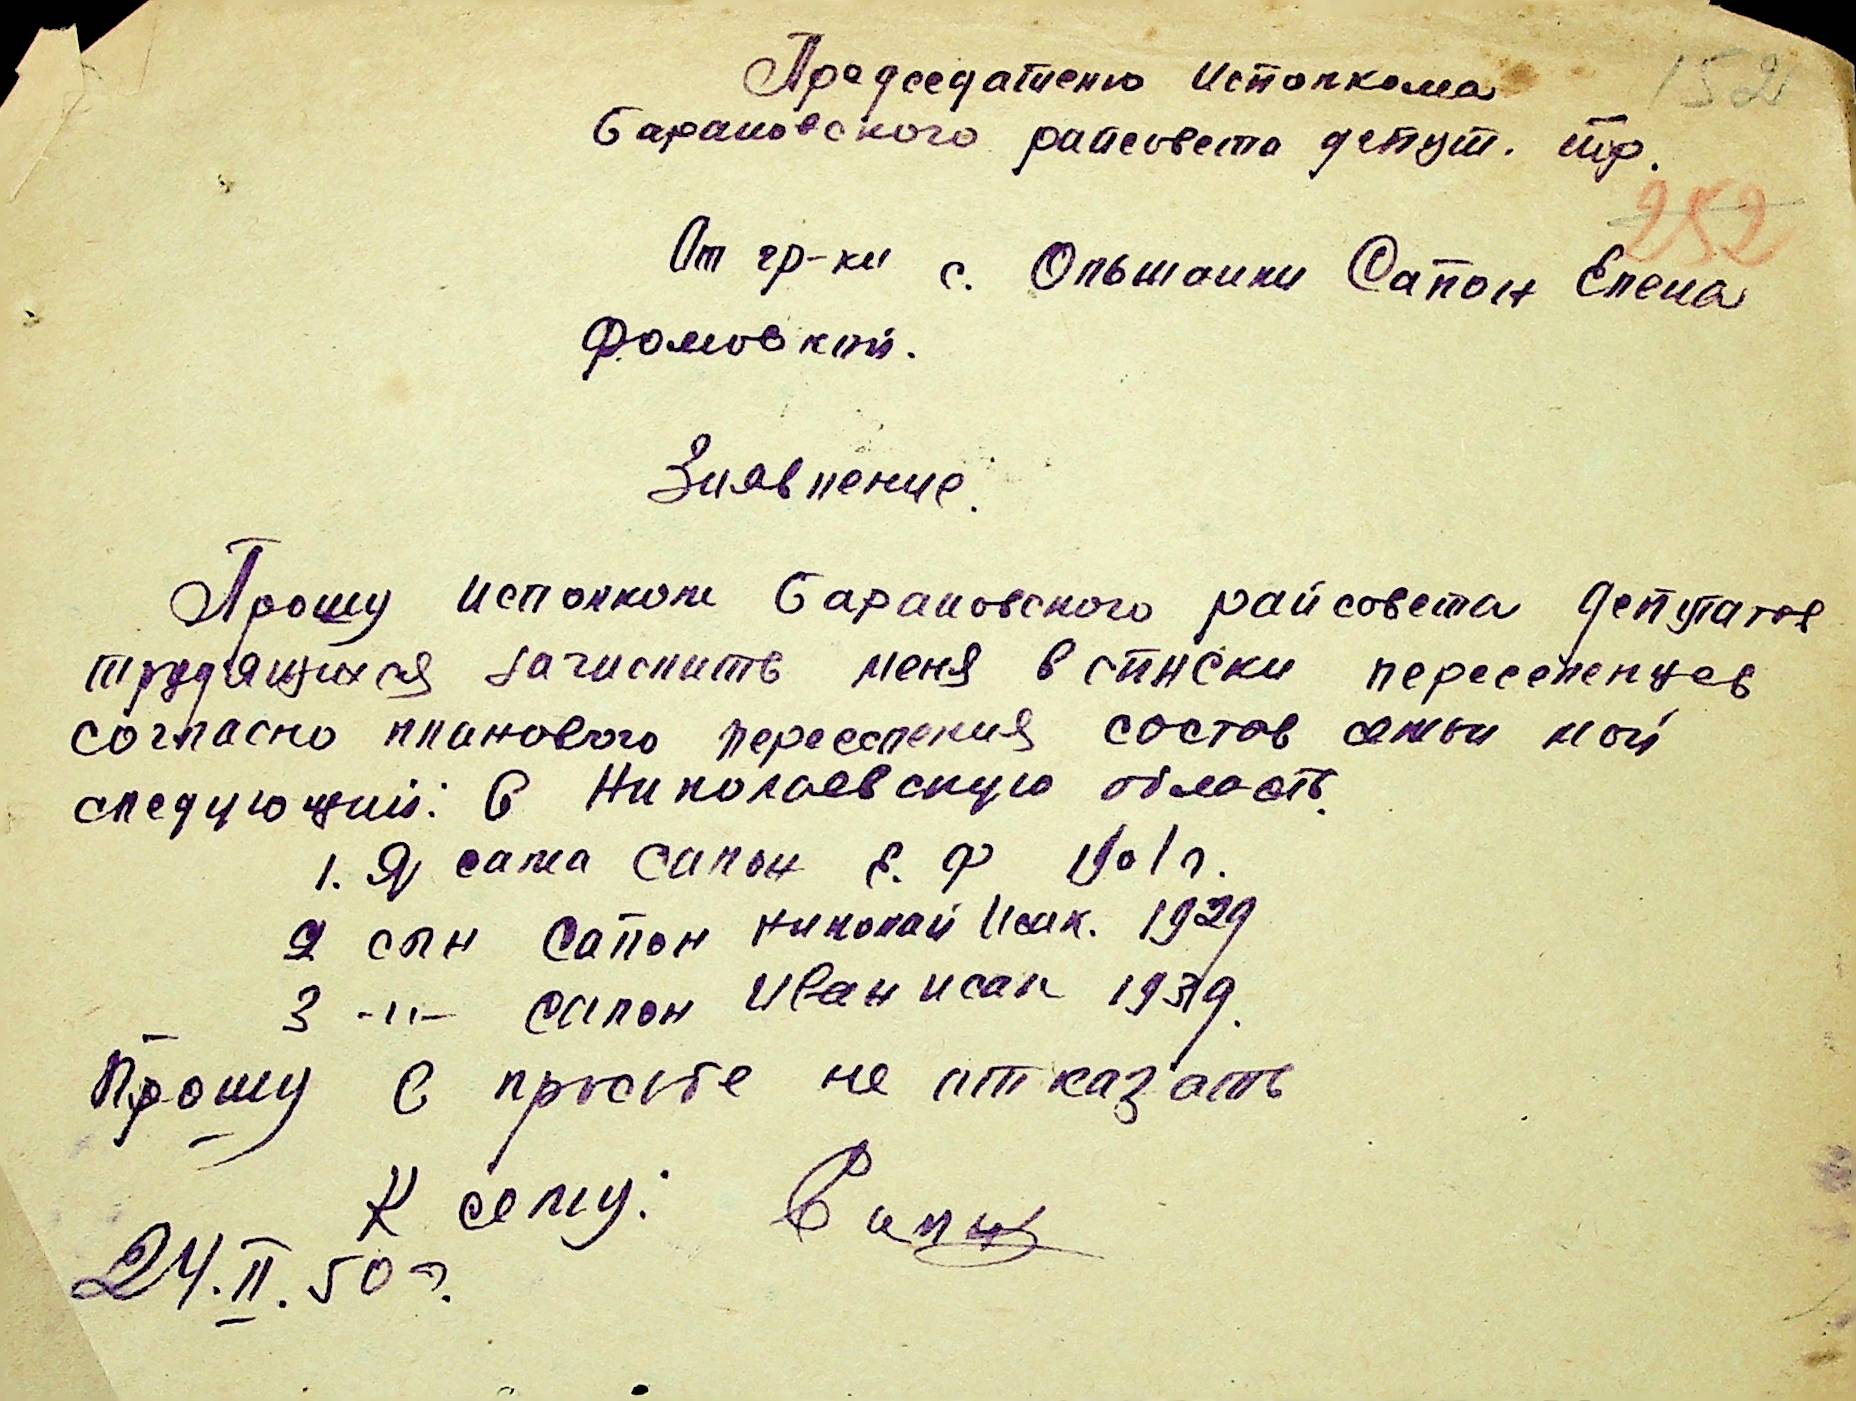 152
Председателю Исполкома
Барановского райсовета депут. тр.
252
От гр-ки с. Ольшанки Сапон Елена
Фомовной.
Заявление.
Прошу Исполком Барановского райсовета депутатов
трудящихся зачислить меня в списки переселенцев
согласно планового переселения состав семьи мой
следующий: В Николаевскую область.
1. Я сама Сапон Е. Ф 1901 г.
2 сын Сапон Николай Исак. 1929
3 -"- Сапон Иван исак 1939.
Прошу в просьбе не отказать
К сему: Сапон
24.II.50 г.